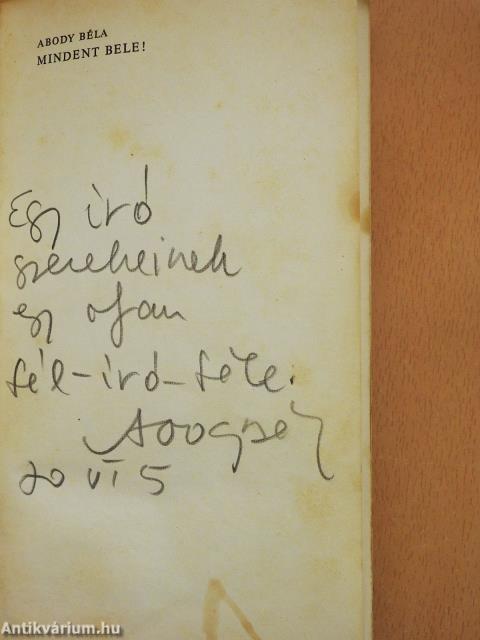 ABODY BÉLA
MINDENT BELE!
Egy író
egy olyan
fél-író-féle.
70 VI 5
Antikvárium.hu